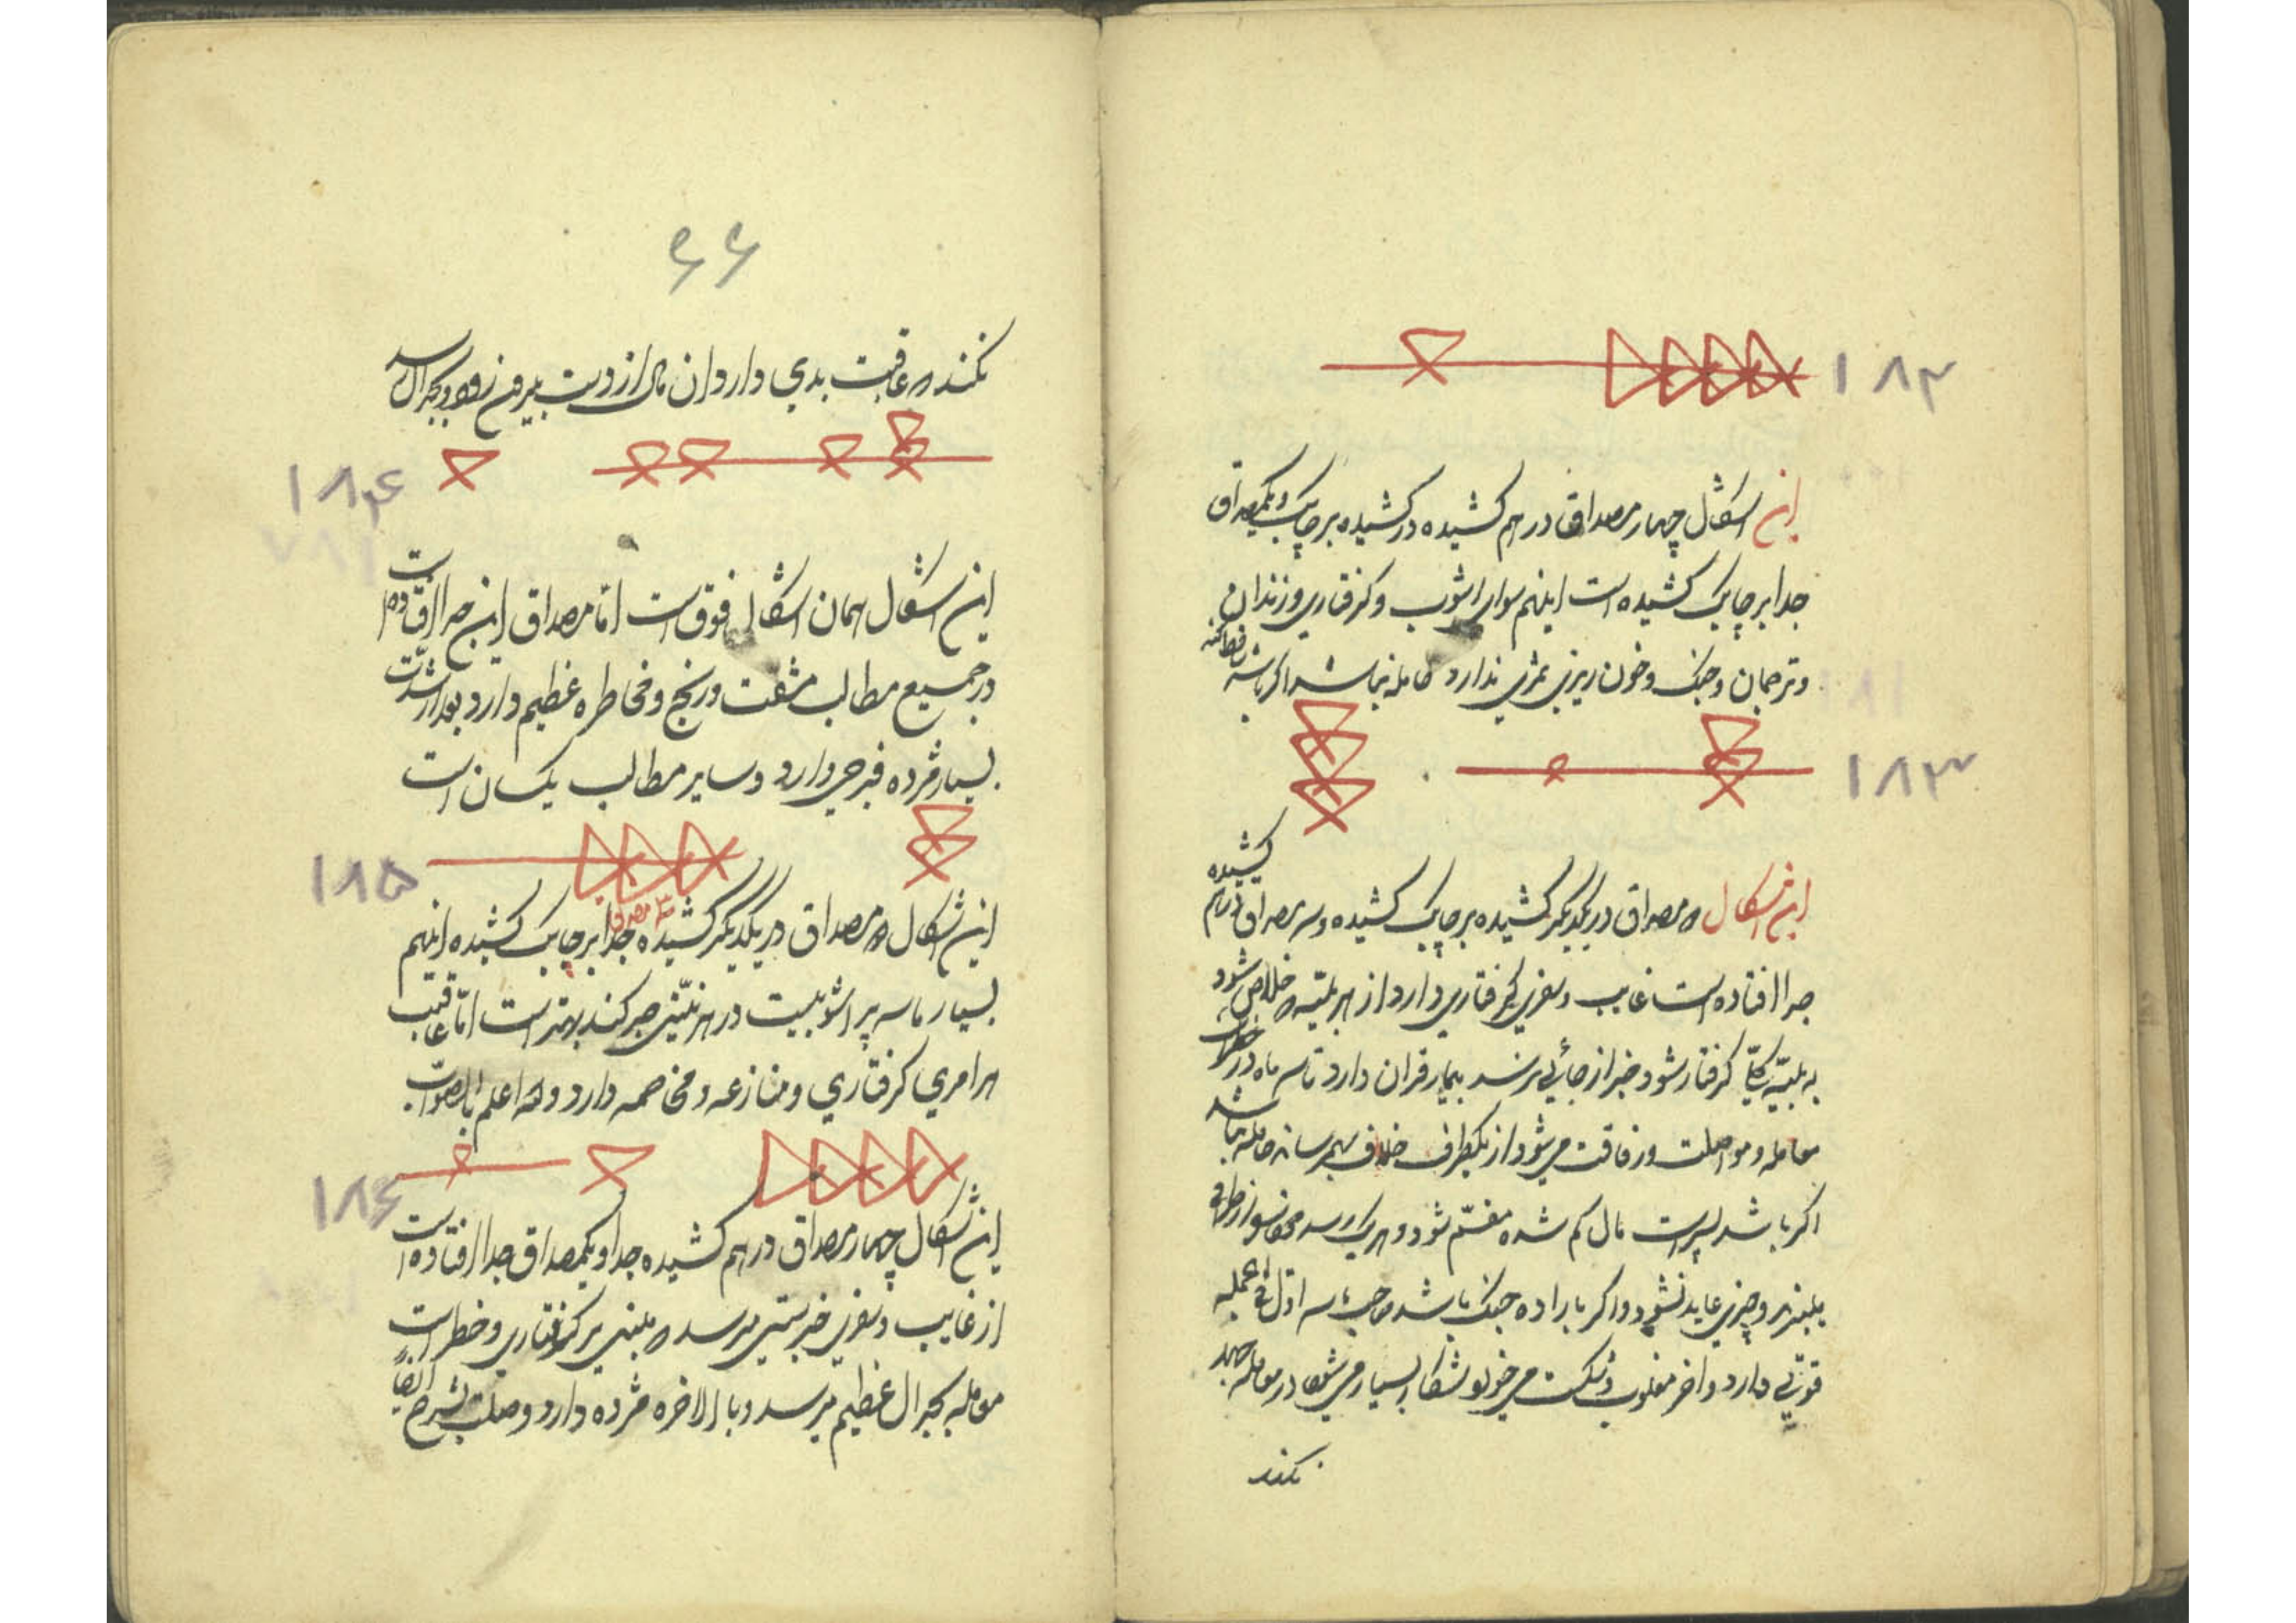 ۱۸۲
این اشکال چهار مصداق در هم کشیده در کشیده بر چابک و یکمصداق
جدا بر چابک کشیده است اینهم سوای اشوب و کرفتاری و زندان
و ترجمان و جنک و خون ریزی ثمری ندارد حامله نباشد اکر باشد
۱۸۳
این اشکال دو مصداق در یکدیکر کشیده بر چابک کشیده و سه مصداق در هم کشیده
جدا افتاده است غایب و سفری کرفتاری دارد از هر بلیّه خلاص شود
به بلیّه کرفتار شود خبر از جائی نرسد بیمار قران دارد تا سه ماه در خطر است
معامله و مواصلت و رفاقت میشود از یکطرف خلاف بهم رساند حامله نباشد
اکر باشد پسر است مال کم شده مقسّم شود و
و چیزی عاید نشود و اکر باراده جنک باشد صاحب تاسه اوّل
قوّتی دارد و اخر مغلوب و شکست میخورد شکار بسیار میشود در معامله جهد
نکند
۶۶
نکند که عاقبت بدی دارد ان مال از دست بیرون رود و بجدال رسد
۱۸۴
این اشکال همان اشکال فوق است امّا مصداق این جدا افتاده است
در جمیع مطالب مشقت و رنج و مخاطره عظیم دارد بعد از شدّت
بسیار مژده فرجی دارد و سایر مطالب یکسان است
۱۸۵
این اشکال دو مصداق در یکدیکر کشیده جدا سه مصداق بر چابک کشیده اینهم
بسیار تاسه پر اشوبیست در هر نیّتی صبر کند بهتر است امّا عاقبت
هر امری کرفتاری و منازعه و مخاصمه دارد والله اعلم بالصّواب
۱۸۶
این اشکال چهار مصداق در هم کشیده جدا و یکمصداق جدا افتاده است
از غایب و سفری خبر میرسد کرفتاری و خطر است
معامله بجدال عظیم میرسد و بالاخره مژده دارد وصلت بشرح ایضاً